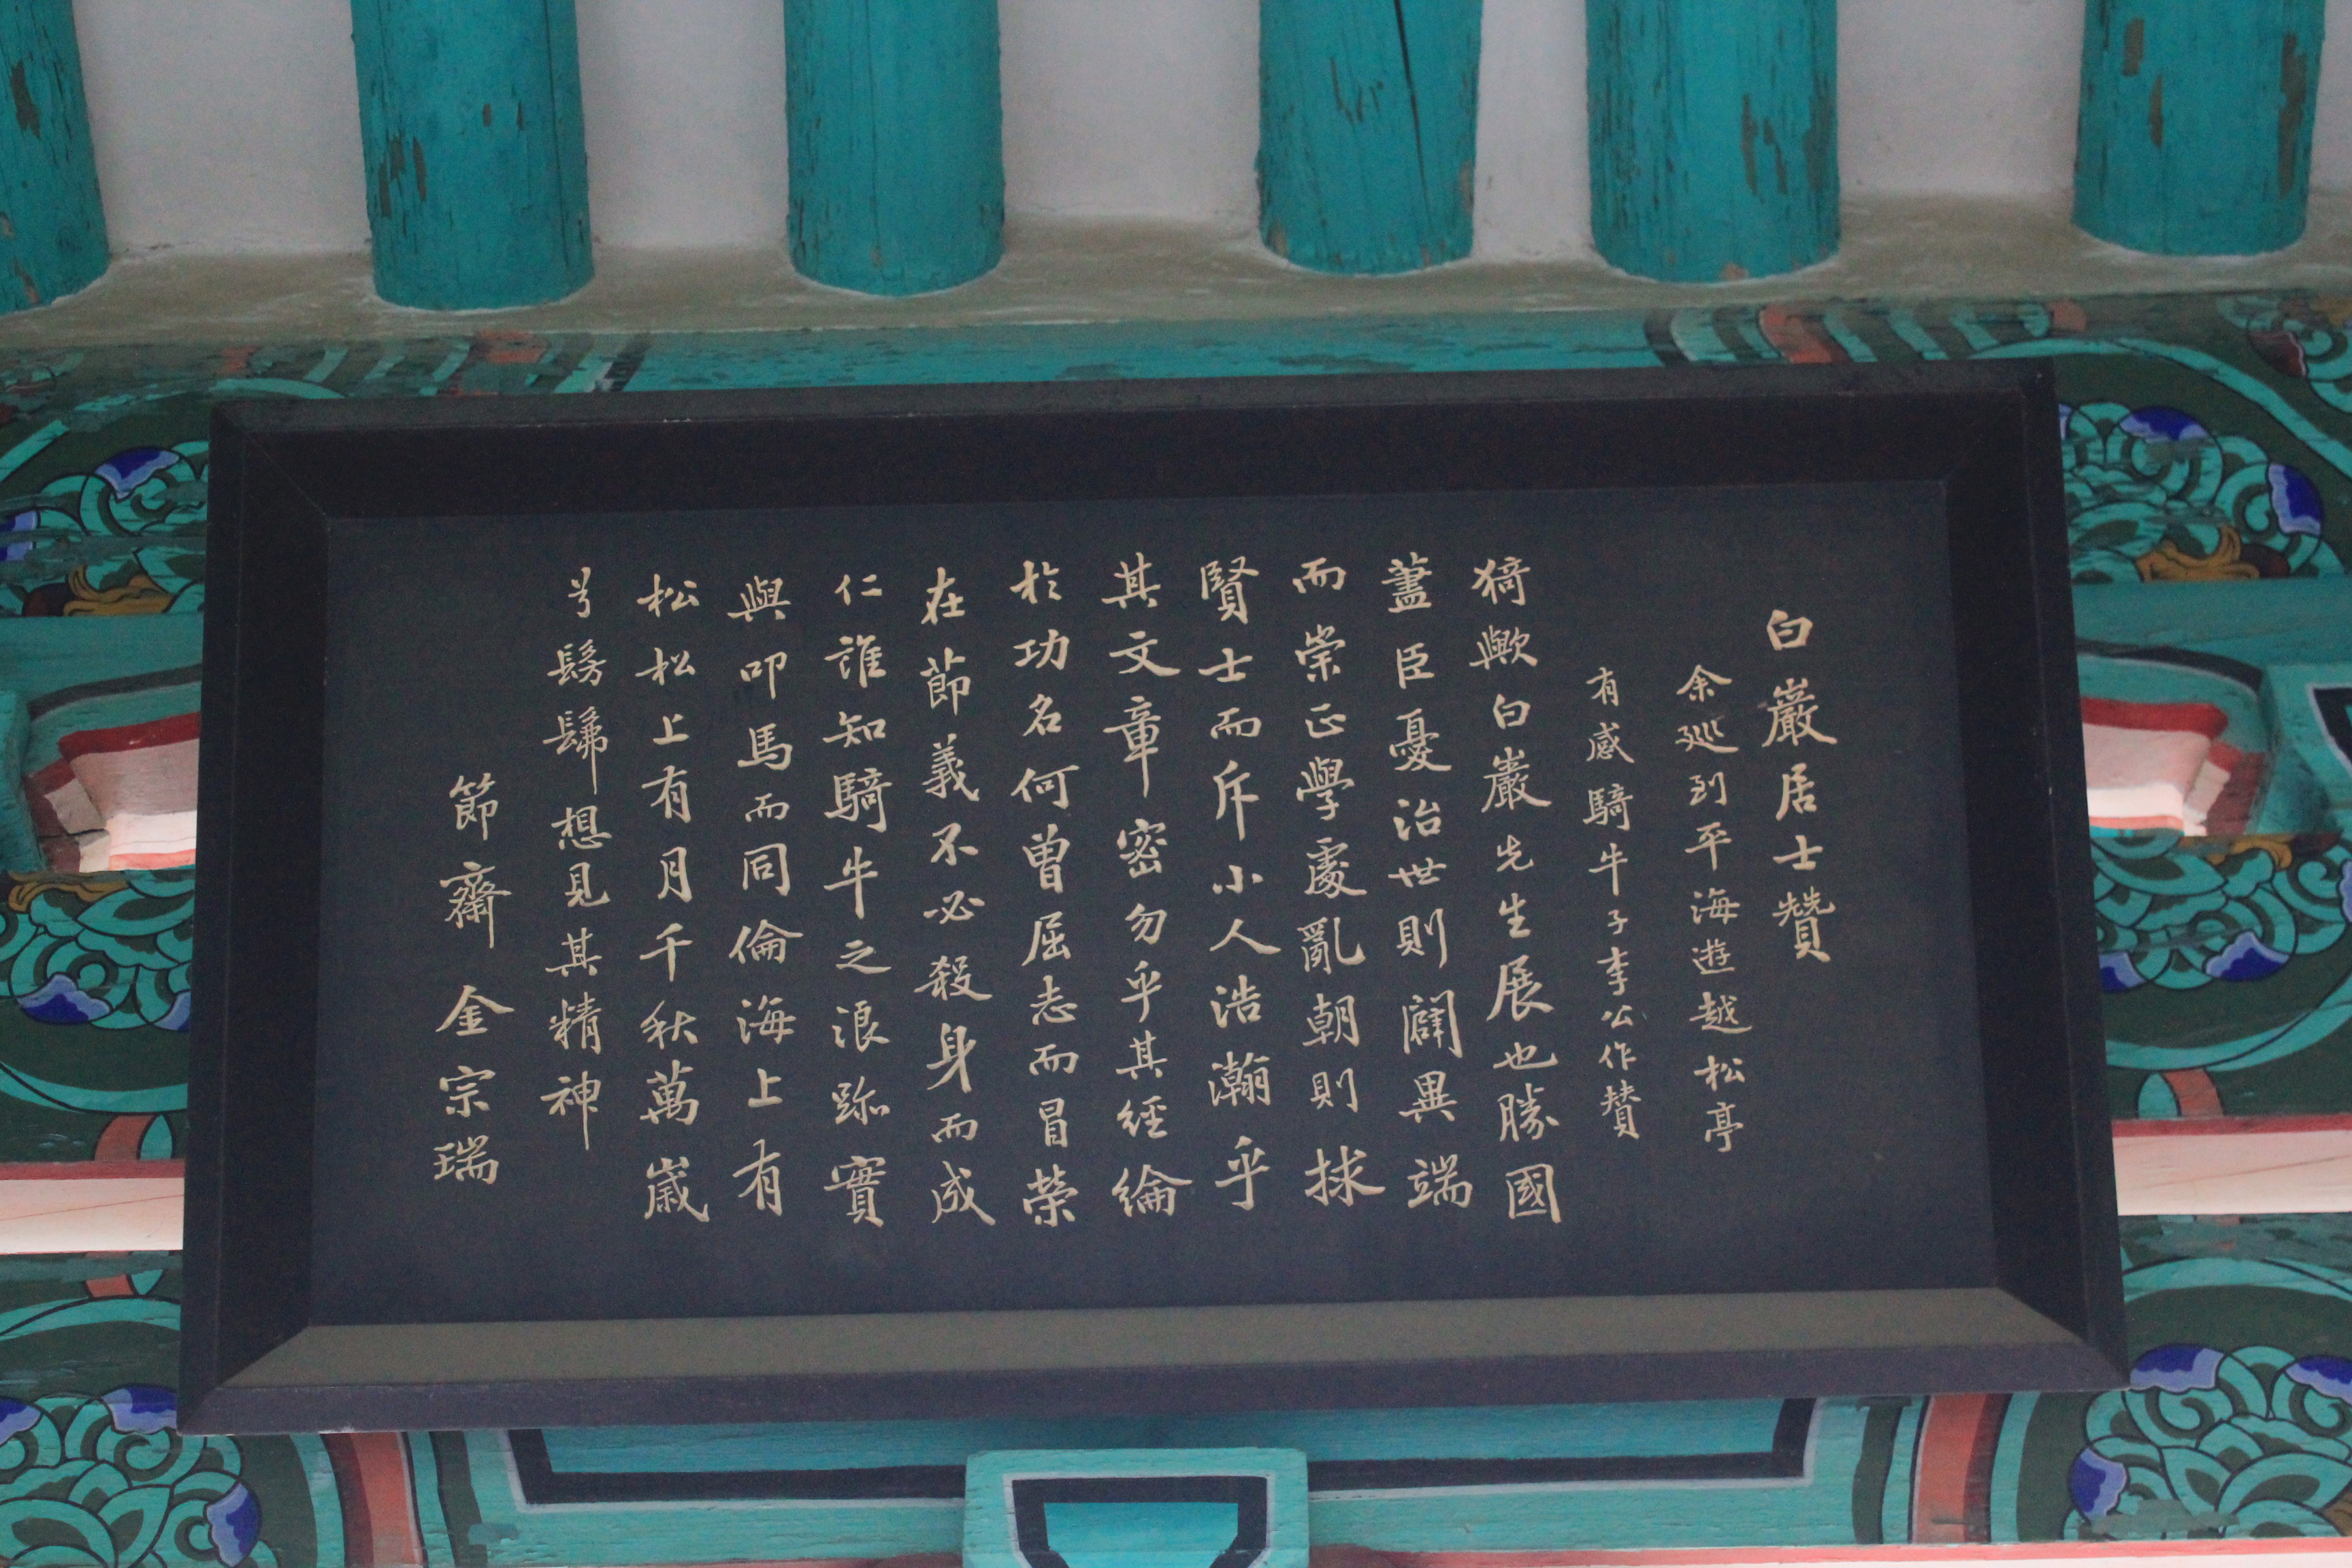 白巖居士贊
余巡到平海遊越松亭
有感騎牛子李公作贊
猗歟白巖先生展也勝國
藎臣憂治世則闢異端
而崇正學處亂朝則捄
賢士而斥小人浩瀚乎
其文章密勿乎其經綸
於功名何曾屈志而冒榮
在節義不必殺身而成
仁誰知騎牛之浪跡實
與叩馬而同倫海上有
松松上有月千秋萬歲
兮髣髴想見其精神
節齋 金宗瑞